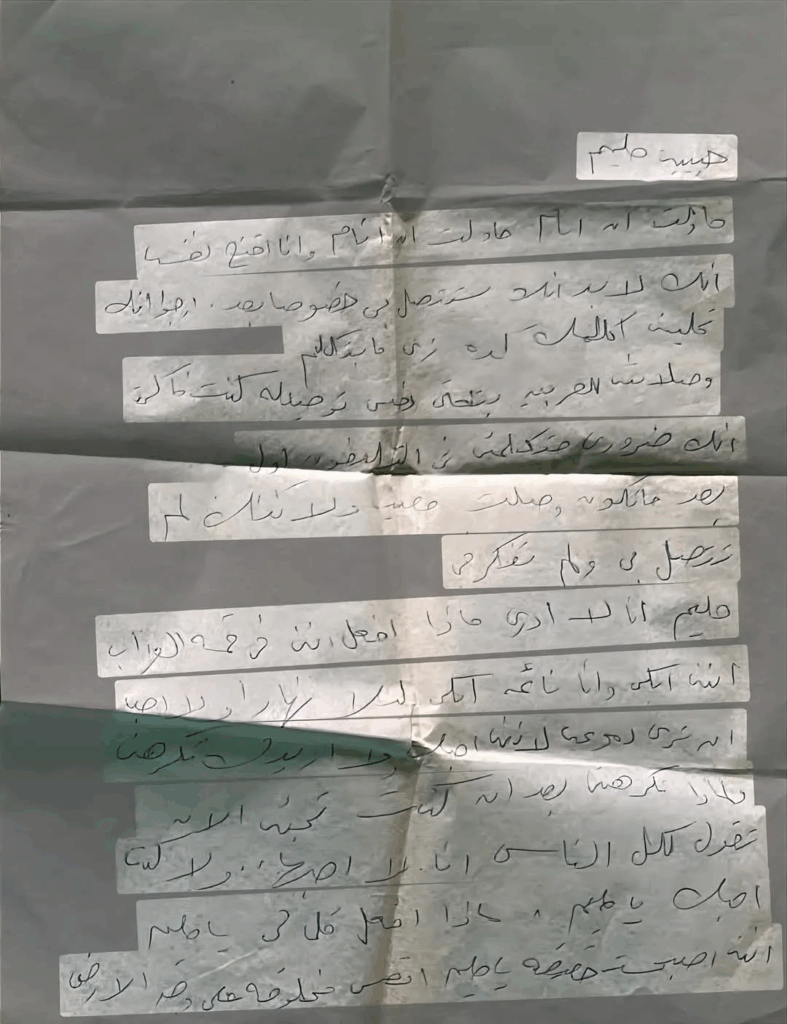 حبيبى حليم
حاولت ان انام حاولت ان انام وانا اقنع نفسى
انك لا بد انك ستتصل بى خصوصا بعد . ارجو انك
تخلينى اكلمك كده زى ما بتكلم
وصلاتك للعربيه بتاعتى توصيله كنت فاكرة
انك ضرورى حتكلمنى فى التليفون اول
بعد ماتكون وصلت ولاكنك لم
تتصل بى ولم تفكر فى
حليم انا لا ادرى ماذا افعل اننى فى قمه العذاب
اننى ابكى وانا نائمه ابكى ليلا نهارا ولا احب
ان ترى دموعى لاننى احبك ولا اريدك تكرهنى
ولماذا تكرهنى بعد ان كنت تحبنى الان
تقول لكل الناس انا لا احبها .. ولا كنت
احبك يا حليم ، ماذا افعل قل لى يا حليم
اننى اصبحت حقيقه يا حليم اتعس مخلوقه على وجه الارض